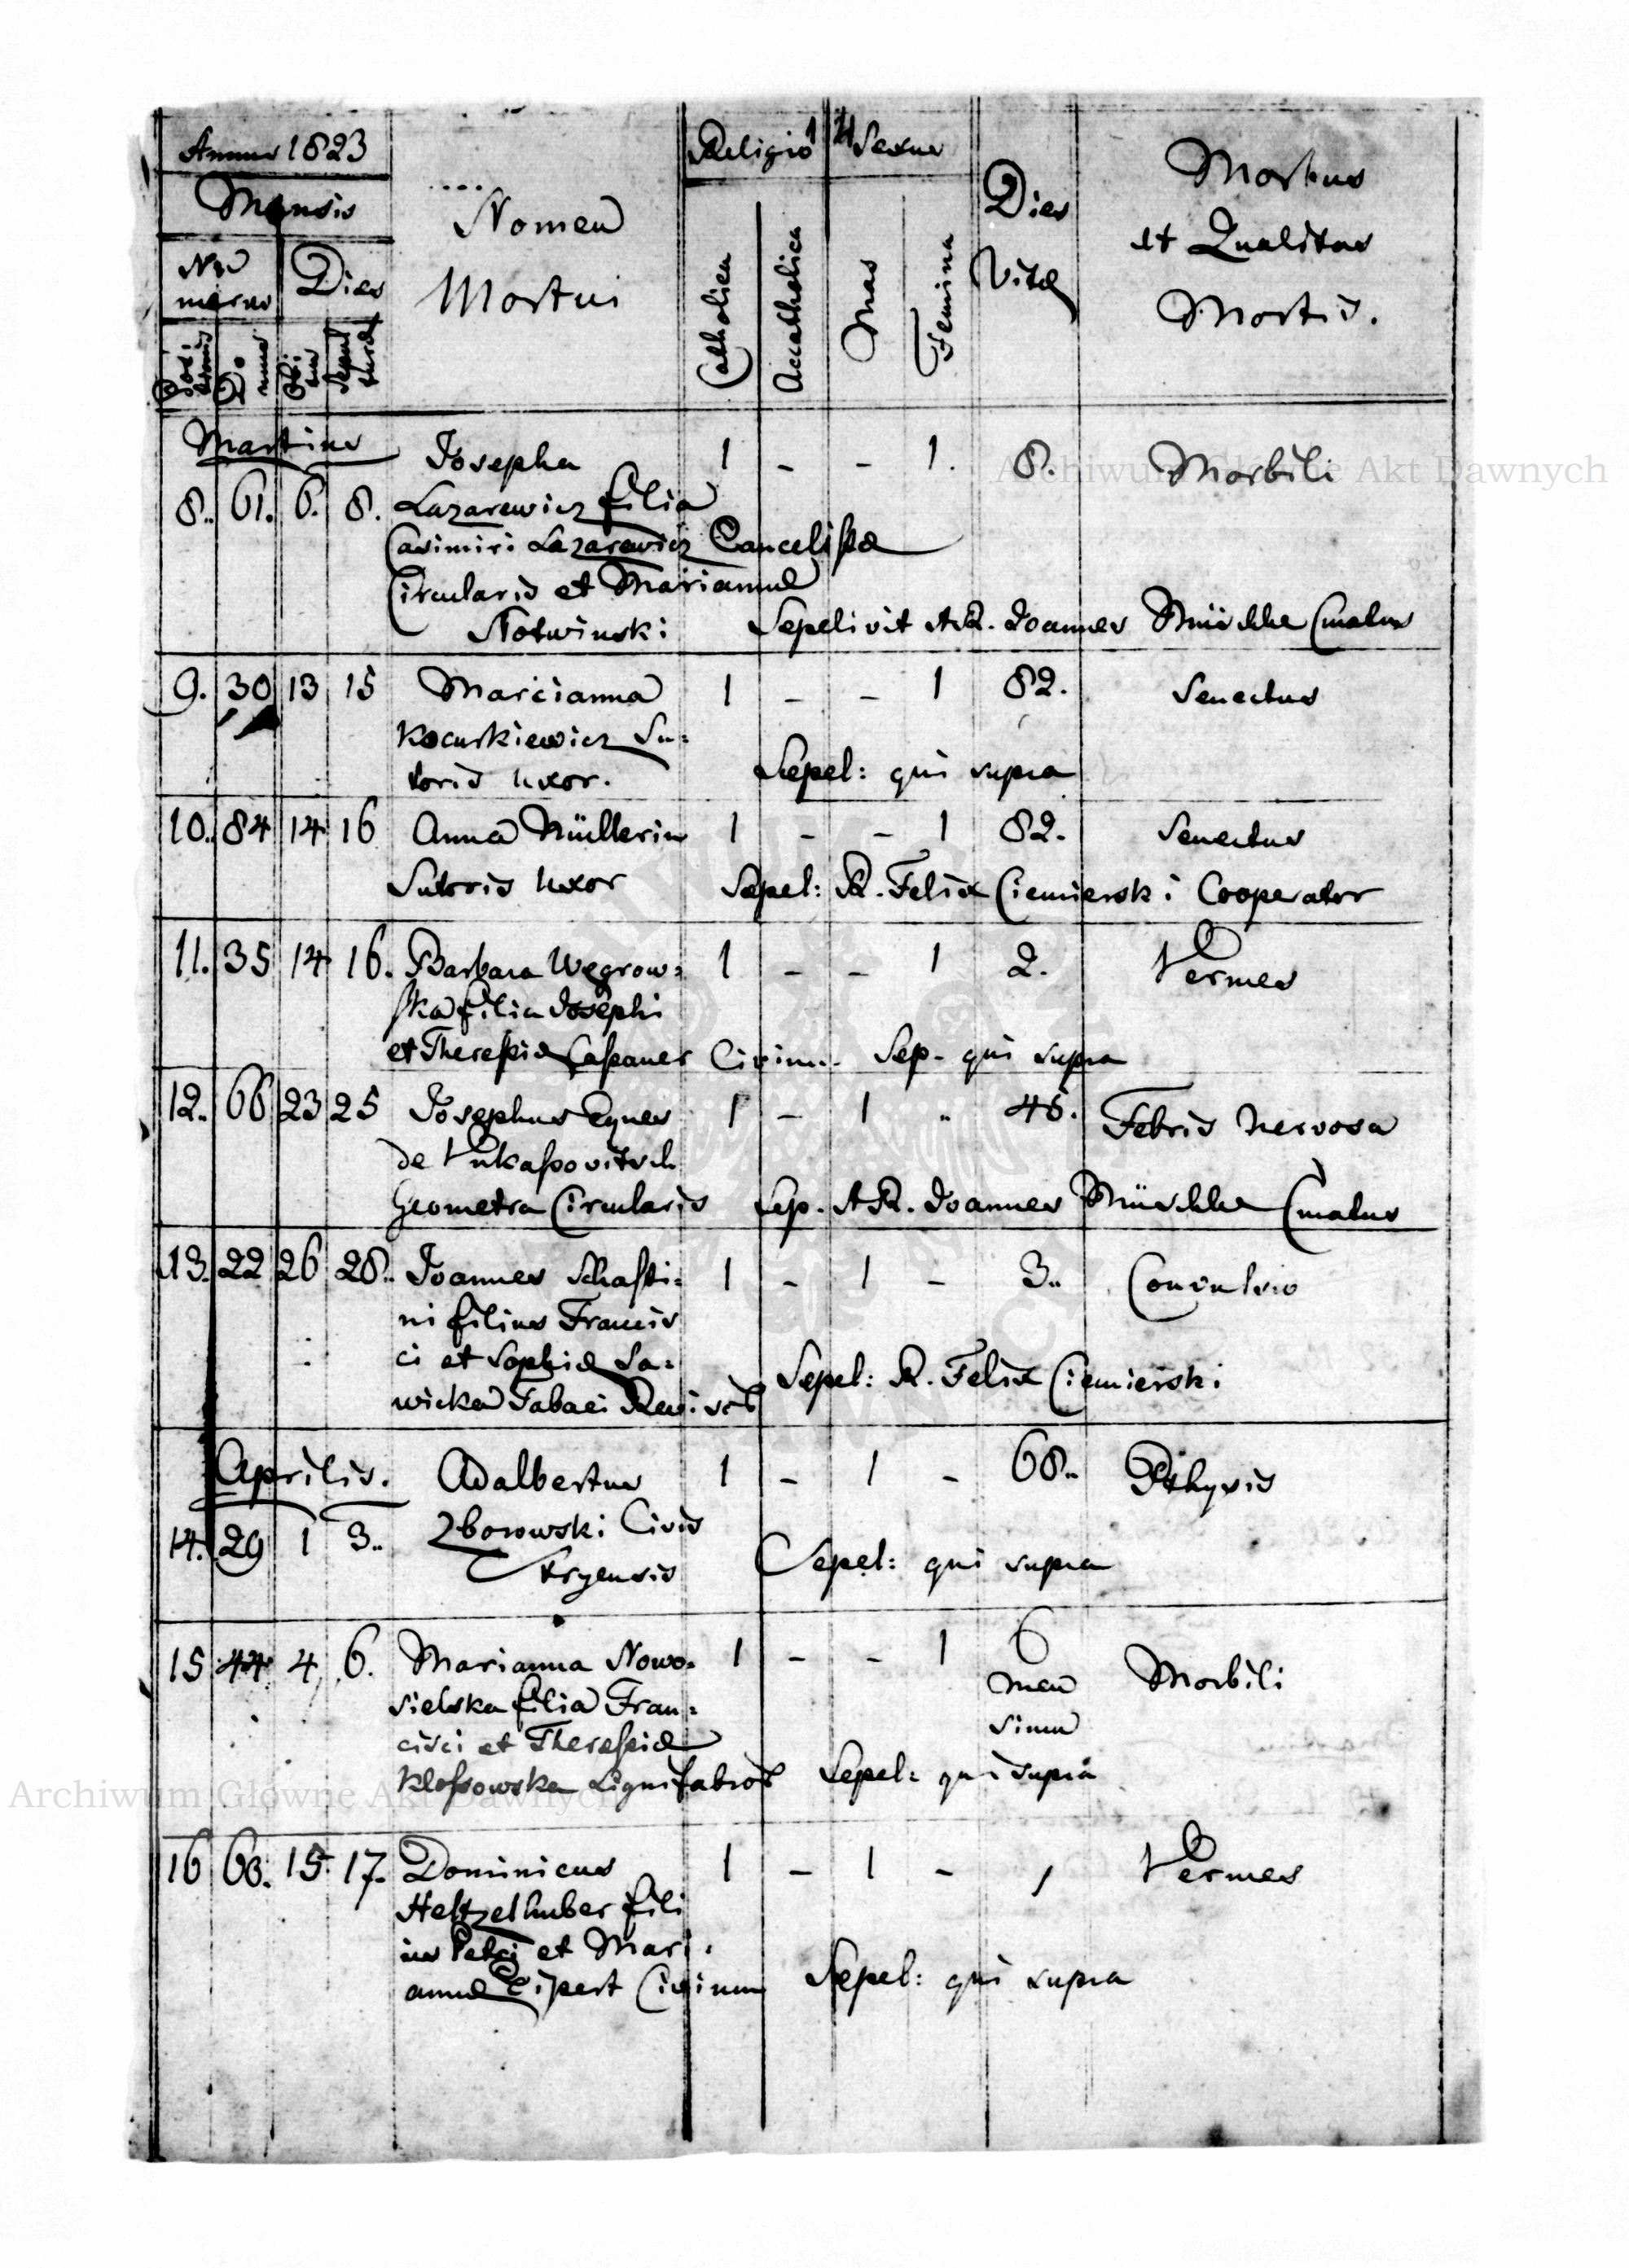 Annus 1823
Mensis
Numerus
Dies
Positionis
Domus
Obitus
Sepulturæ
Nomen
Mortui
Religio
Catholica
Accatholica
Sexus
Mas
Femina
Dies
Vitæ
Morbus
et Qualitas
Mortis.
Martius
Josepha 1 - - 1. 8. Morbili
8.. 61. 6. 8. Lazarewicz filia
Casimiri Lazarewicz Cancelistæ
Circularis et Mariannæ
Notwinski Sepelivit AR. Joannes Curatus
9. 30 13 15 Marcianna 1 - - 1 82. Senectus
Kocurkiewicz Su=
toris Uxor. Sepel: qui supra
10.. 84 14 16 Anna Müllerin 1 - - 1 82. Senectus
Sutoris Uxor Sepel: R. Felix Ciemierski Cooperator
11. 35 14 16. Barbara Wegrow= 1 - - 1 2. Vermes
ska filia Josephi
et Theresiæ Civium. Sep. qui supra
12.. 66 23 25 Josephus Eques 1 - 1 .. 46. Febris Nervosa
de Vukassovitsch
Geometra Circularis Sep. AR. Joannes Curatus
13. 22 26 28.. Joannes Schasti= 1 - 1 - 3.. Convulsio
ni filius Francis
ci et Sophiæ Sa=
wicka Tabaci Sepel: R. Felix Ciemierski
Aprilis. Adalbertus 1 - 1 - 68.. Pthysis
14. 29 1 3.. Zborowski Civis
Stryensis Sepel: qui supra
15 44 4 6. Marianna Nowo= 1 - - 1 6 Morbili
sielska filia Fran= men
cisci et Theresiæ sium
Klossowska Lignifabror Sepel: qui supra
16 63. 15 17. Dominicus 1 - 1 - 1 Vermes
Heltzelhuber fili
us Petri et Mari=
annæ Eipert Civium Sepel: qui supra
Archiwum Główne Akt Dawnych
Archiwum Główne Akt Dawnych